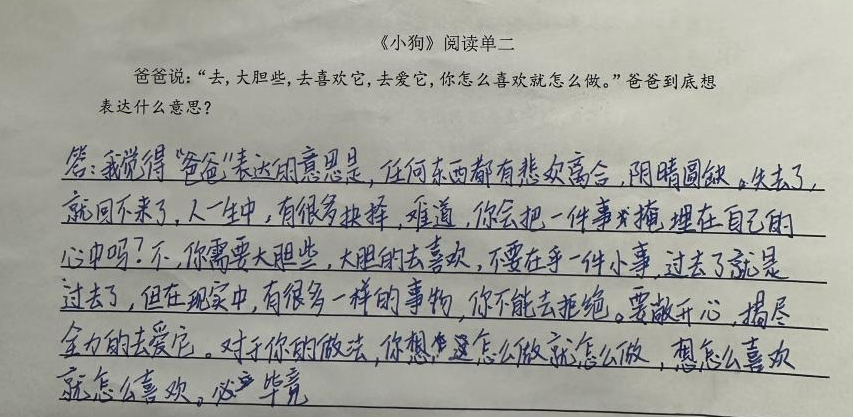 《小狗》阅读单二
爸爸说：“去，大胆些，去喜欢它，去爱它，你怎么喜欢就怎么做。”爸爸到底想
表达什么意思？
答：我觉得“爸爸”表达的意思是，任何东西都有悲欢离合，阴晴圆缺。失去了，
就回不来了，人一生中，有很多抉择，难道，你会把一件事掩埋在自己的
心中吗？不，你需要大胆些，大胆的去喜欢，不要在乎一件小事，过去了就是
过去了，但在现实中，有很多一样的事物，你不能去拒绝。要敞开心，揭尽
全力的去爱它。对于你的做法，你想怎么做就怎么做，想怎么喜欢
就怎么喜欢。毕竟